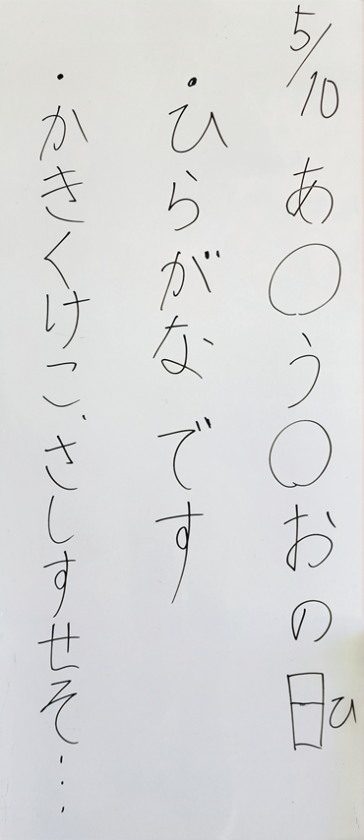 5/10 あ○う○おの日ひ
・ひらがなです
・かきくけこ、さしすせそ…